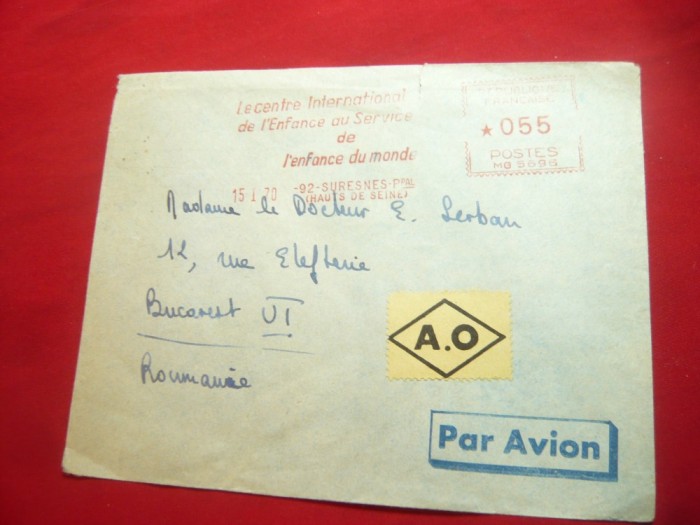 Le centre International
de l'Enfance au Service
de
l'enfance du monde
RÉPUBLIQUE
FRANÇAISE
★ 055
POSTES
MG 9696
15 1 70 -92-SURESNES-PPAL
(HAUTS DE SEINE)
Madame le Docteur E. Serban
12, rue Elefterie
Bucarest VI
Roumanie
A.O
Par Avion